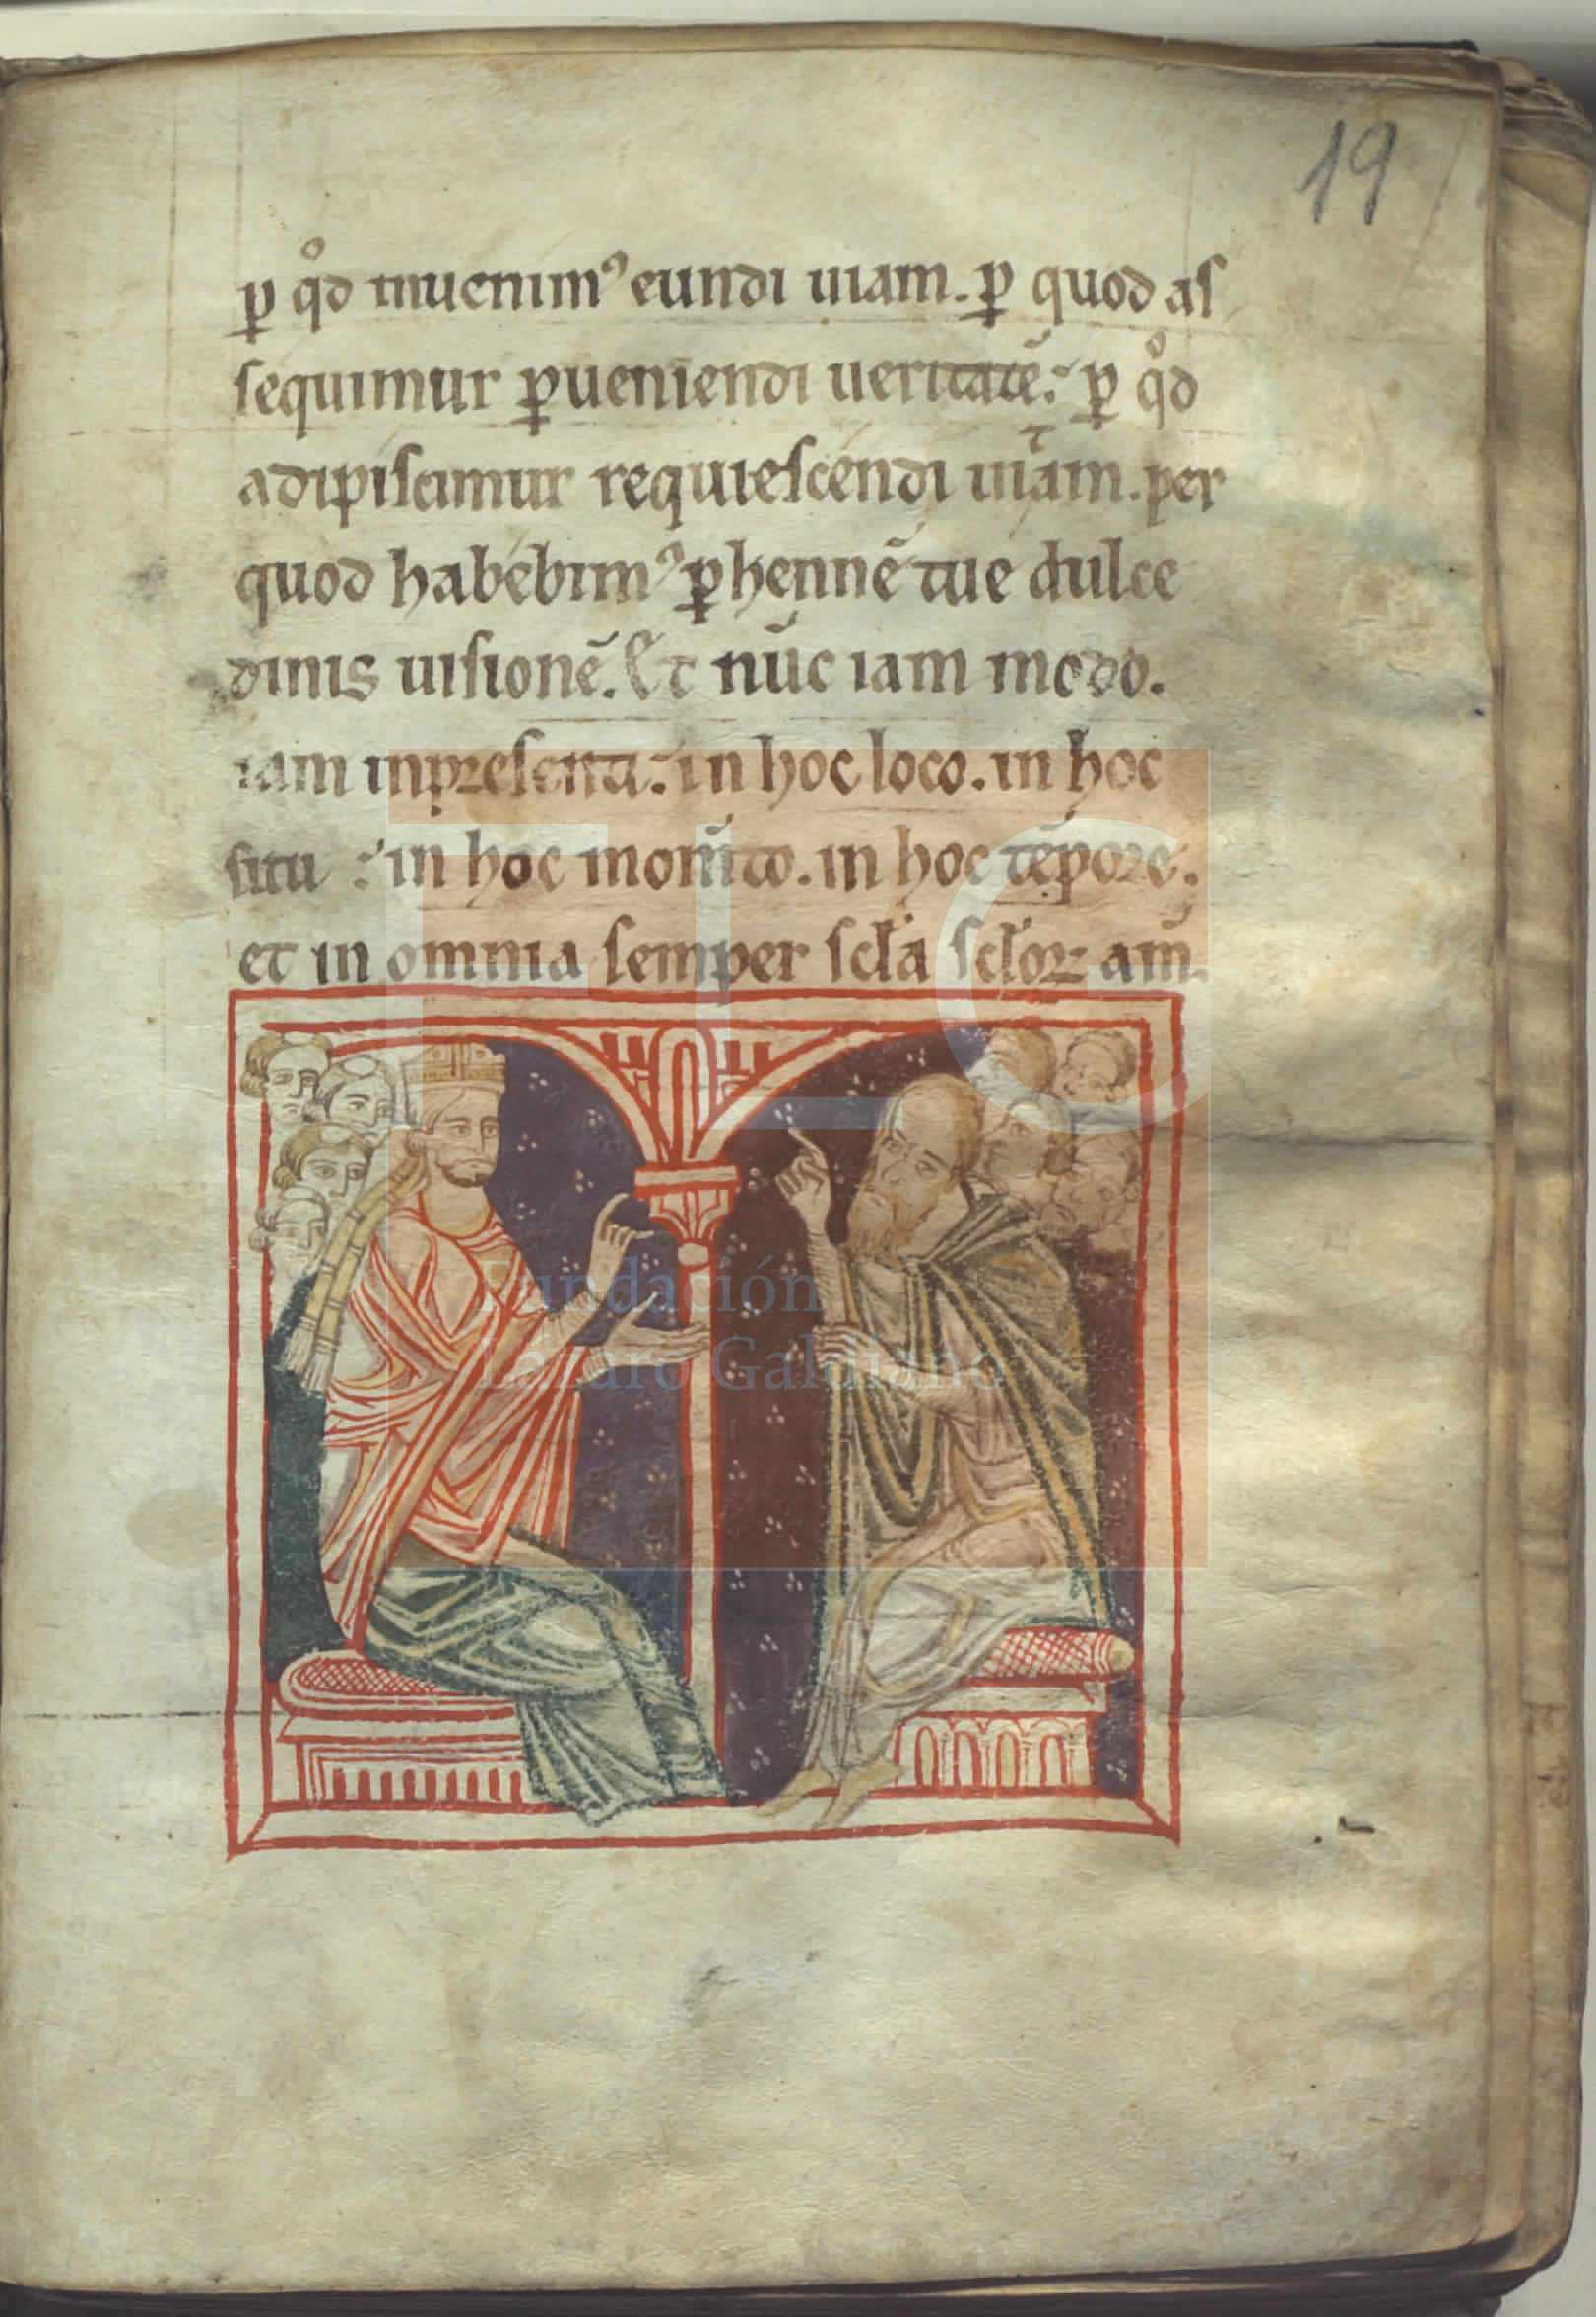 19
p̱ qͦd inuenimꝰ eundi uiam. p̱ quod as
sequimur p̱ueniendi ueritatē. p̱ qͦd
adipiscimur requiescendi uitam. per
quod habebimꝰ p̱hennē tue dulce
dinis uisionē. Et nūc iam modo.
iam inpresenti. in hoc loco. in hoc
situ in hoc mom̄to. in hoc tēpore.
et in omnia semper scl̄a scl̄oꝝ am̄.
FLG
Fundación
Lázaro Galdiano